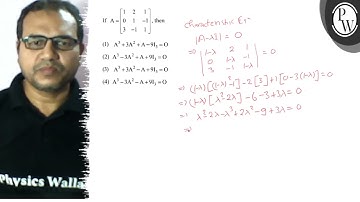 If A = [1 2 1
0 1 -1
3 -1 1], then
(1) A³ + 3A² + A - 9I₃ = O
(2) A³ - 3A² + A + 9I₃ = O
(3) A³ + 3A² - A + 9I₃ = O
(4) A³ - 3A² - A + 9I₃ = O
Characteristic Eqⁿ
|A-λI| = 0
⇒ |1-λ 2 1
0 1-λ -1
3 -1 1-λ| = 0
⇒ (1-λ)[(1-λ)²-1] - 2[3] + 1[0-3(1-λ)] = 0
⇒ (1-λ)[λ²-2λ] - 6 - 3 + 3λ = 0
⇒ λ²-2λ-λ³+2λ²-9+3λ = 0
⇒
PW
Physics Walla